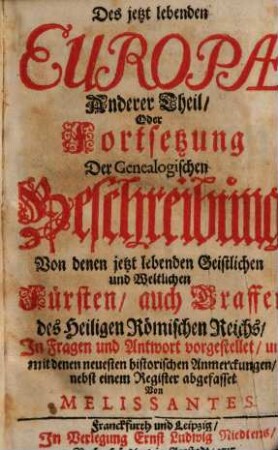 Des jetzt lebenden
EUROPÆ
Anderer Theil/
Oder
Fortsetzung
Der Genealogischen
Beschreibung
Von denen jetzt lebenden Geistlichen
und Weltlichen
Fürsten/ auch Graffen
des Heiligen Römischen Reichs/
In Fragen und Antwort vorgestellet/ un
mit denen neuesten historischen Anmerckungen/
nebst einem Register abgefasset
Von
MELISSANTES.
Franckfurth und Leipzig/
In Verlegung Ernst Ludwig Niedtens/